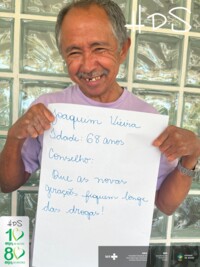 ADS
Joaquim Vieira
Idade: 68 anos
Conselho:
Que as novas
gerações fiquem longe
das drogas!
ADS